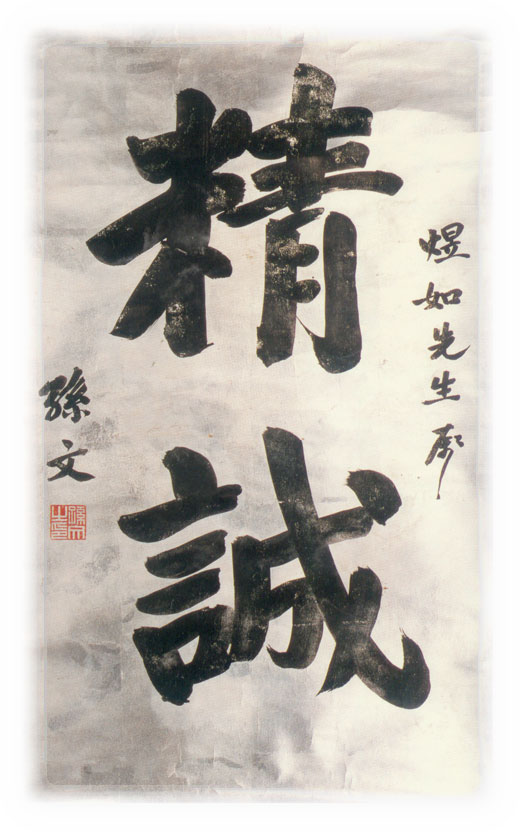 煜如先生屬
精誠
孫文
孫文之印